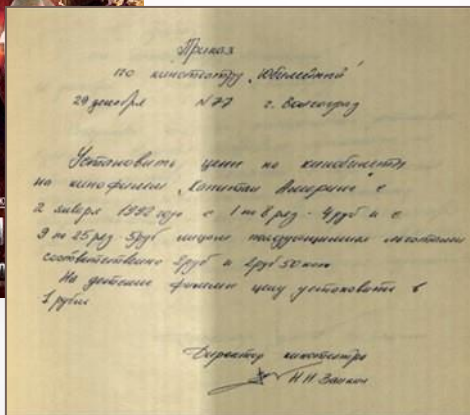 Приказ
по кинотеатру „Юбилейный"
29 декабря N 77 г. Волгоград
Установить цены на кинобилеты
на кинофильм „Капитан Америка" с
2 января 1992 года с 1 по 8 ряд - 4 руб и с
9 по 25 ряд 5 руб лицам пользующимися льготами
соответственно 2 руб и 2 руб 50 коп
На детские фильмы цену установить в
1 рубль
Директор кинотеатра
Н.И.